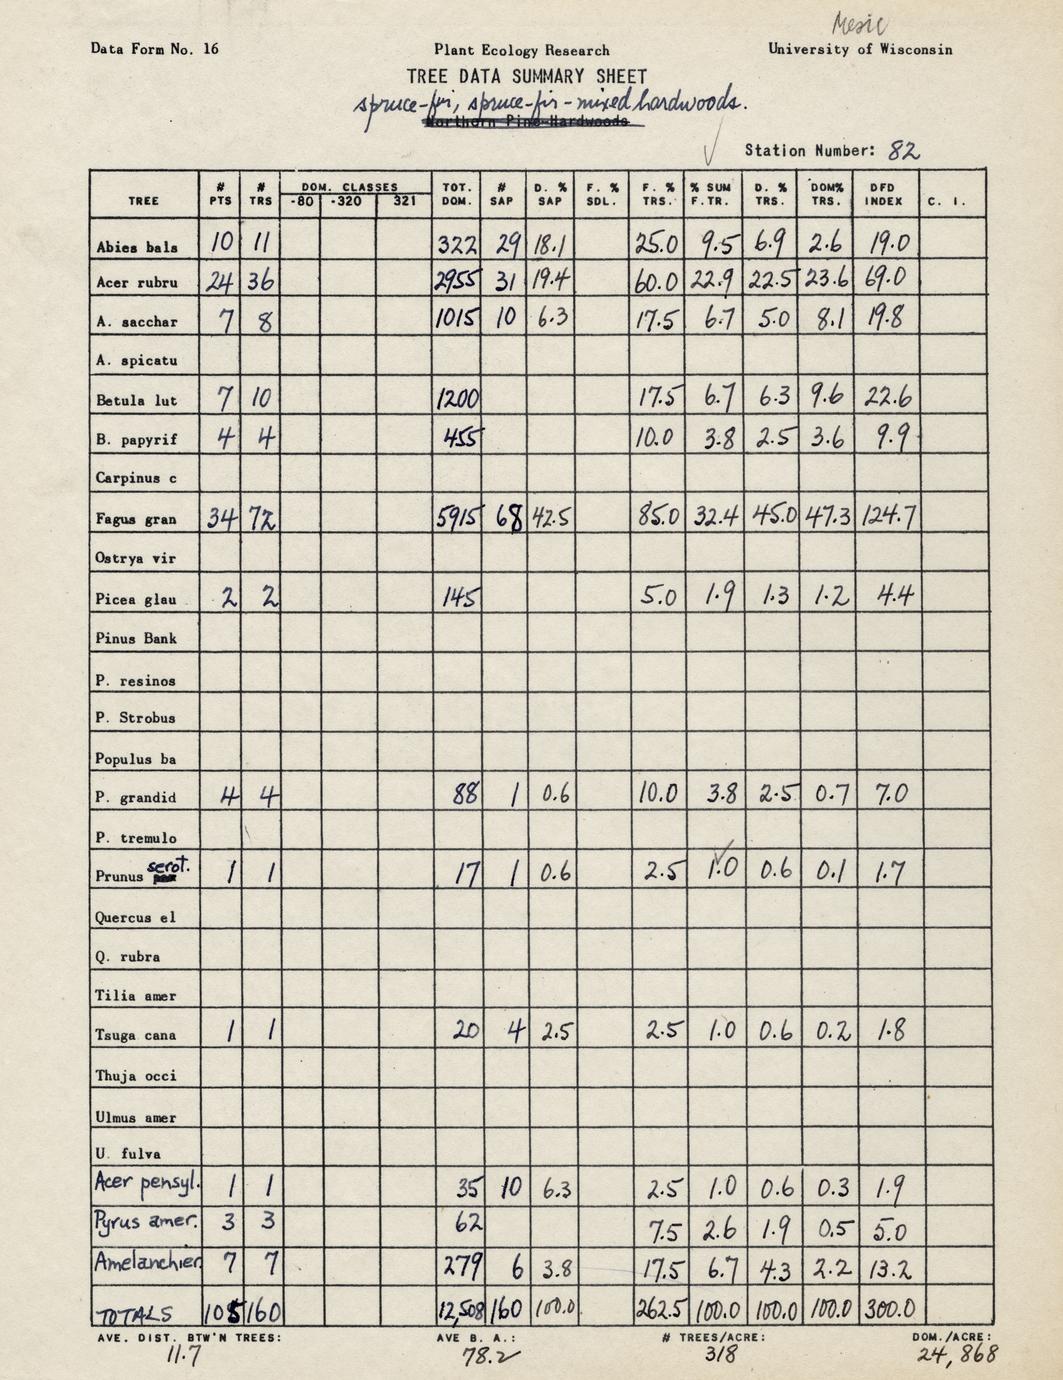 Mesic
Data Form No. 16 Plant Ecology Research University of Wisconsin
TREE DATA SUMMARY SHEET
spruce-fir, spruce-fir-mixed hardwoods.
Northern Pine-Hardwoods
Station Number: 82
TREE # PTS # TRS DOM. CLASSES -80 -320 321 TOT. DOM. # SAP D. % SAP F. % SDL. F. % TRS. % SUM F.TR. D. % TRS. DOM% TRS. DFD INDEX C. I.
Abies bals 10 11 322 29 18.1 25.0 9.5 6.9 2.6 19.0
Acer rubru 24 36 2955 31 19.4 60.0 22.9 22.5 23.6 69.0
A. sacchar 7 8 1015 10 6.3 17.5 6.7 5.0 8.1 19.8
A. spicatu
Betula lut 7 10 1200 17.5 6.7 6.3 9.6 22.6
B. papyrif 4 4 455 10.0 3.8 2.5 3.6 9.9
Carpinus c
Fagus gran 34 72 5915 68 42.5 85.0 32.4 45.0 47.3 124.7
Ostrya vir
Picea glau 2 2 145 5.0 1.9 1.3 1.2 4.4
Pinus Bank
P. resinos
P. Strobus
Populus ba
P. grandid 4 4 88 1 0.6 10.0 3.8 2.5 0.7 7.0
P. tremulo
Prunus serot. 1 1 17 1 0.6 2.5 1.0 0.6 0.1 1.7
Quercus el
Q. rubra
Tilia amer
Tsuga cana 1 1 20 4 2.5 2.5 1.0 0.6 0.2 1.8
Thuja occi
Ulmus amer
U. fulva
Acer pensyl. 1 1 35 10 6.3 2.5 1.0 0.6 0.3 1.9
Pyrus amer. 3 3 62 7.5 2.6 1.9 0.5 5.0
Amelanchier 7 7 279 6 3.8 17.5 6.7 4.3 2.2 13.2
TOTALS 105 160 12,508 160 100.0 262.5 100.0 100.0 100.0 300.0
AVE. DIST. BTW'N TREES: AVE B. A.: # TREES/ACRE: DOM./ACRE:
11.7 78.2 318 24,868